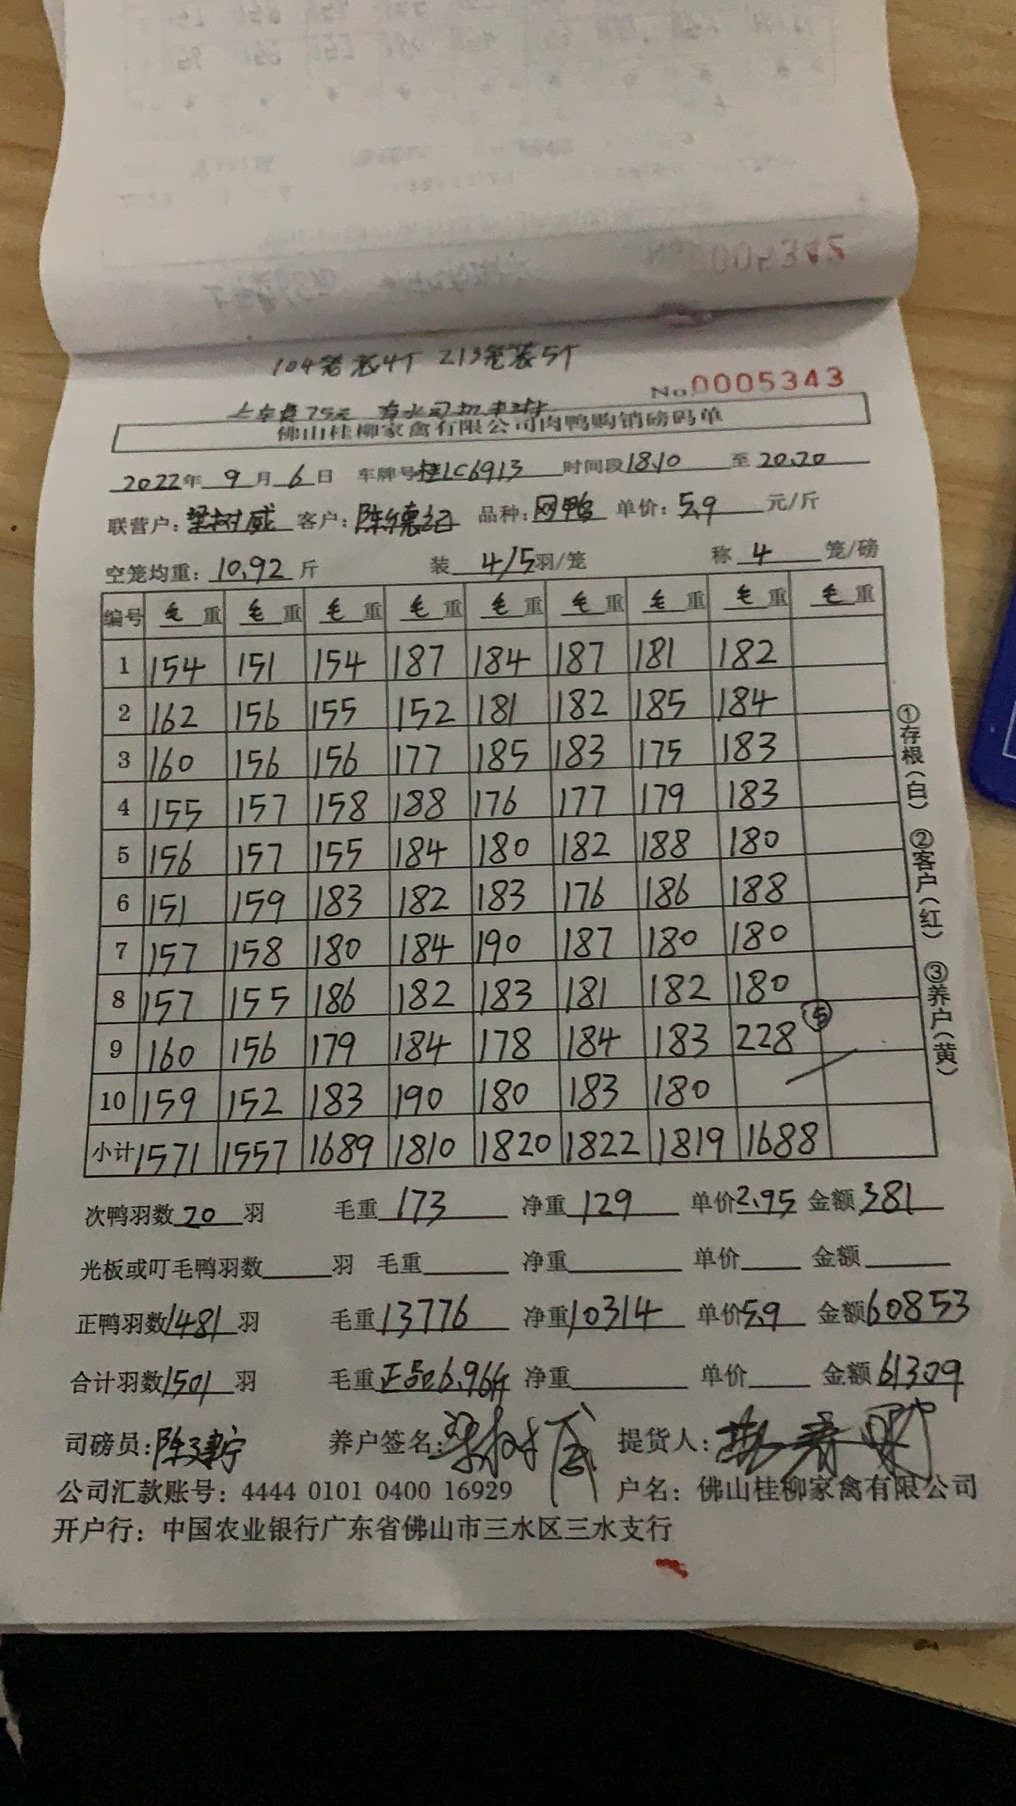 104笼装4个 213笼装5个
No.0005343
上车费75元
佛山桂柳家禽有限公司肉鸭购销磅码单
2022年 9月 6日 车牌号桂LC6913 时间段18.10 至20.20
联营户:梁树威 客户:陈德记 品种:网鸭 单价:5.9 元/斤
空笼均重:10.92斤 装 4/5羽/笼 称 4 笼/磅
编号 毛重 毛重 毛重 毛重 毛重 毛重 毛重 毛重 毛重
1 154 151 154 187 184 187 181 182
2 162 156 155 152 181 182 185 184
3 160 156 156 177 185 183 175 183
4 155 157 158 188 176 177 179 183
5 156 157 155 184 180 182 188 180
6 151 159 183 182 183 176 186 188
7 157 158 180 184 190 187 180 180
8 157 155 186 182 183 181 182 180
9 160 156 179 184 178 184 183 228 ⑤
10 159 152 183 190 180 183 180
小计 1571 1557 1689 1810 1820 1822 1819 1688
次鸭羽数 20 羽 毛重 173 净重 129 单价2.95 金额 381
光板或叮毛鸭羽数 羽 毛重 净重 单价 金额
正鸭羽数1481羽 毛重13776 净重10314 单价5.9 金额60853
合计羽数1501羽 毛重正品6.96斤 净重 单价 金额61309
司磅员:陈建宁 养户签名:梁树威 提货人:
公司汇款账号:4444 0101 0400 16929 户名:佛山桂柳家禽有限公司
开户行:中国农业银行广东省佛山市三水区三水支行
①存根(白) ②客户(红) ③养户(黄)